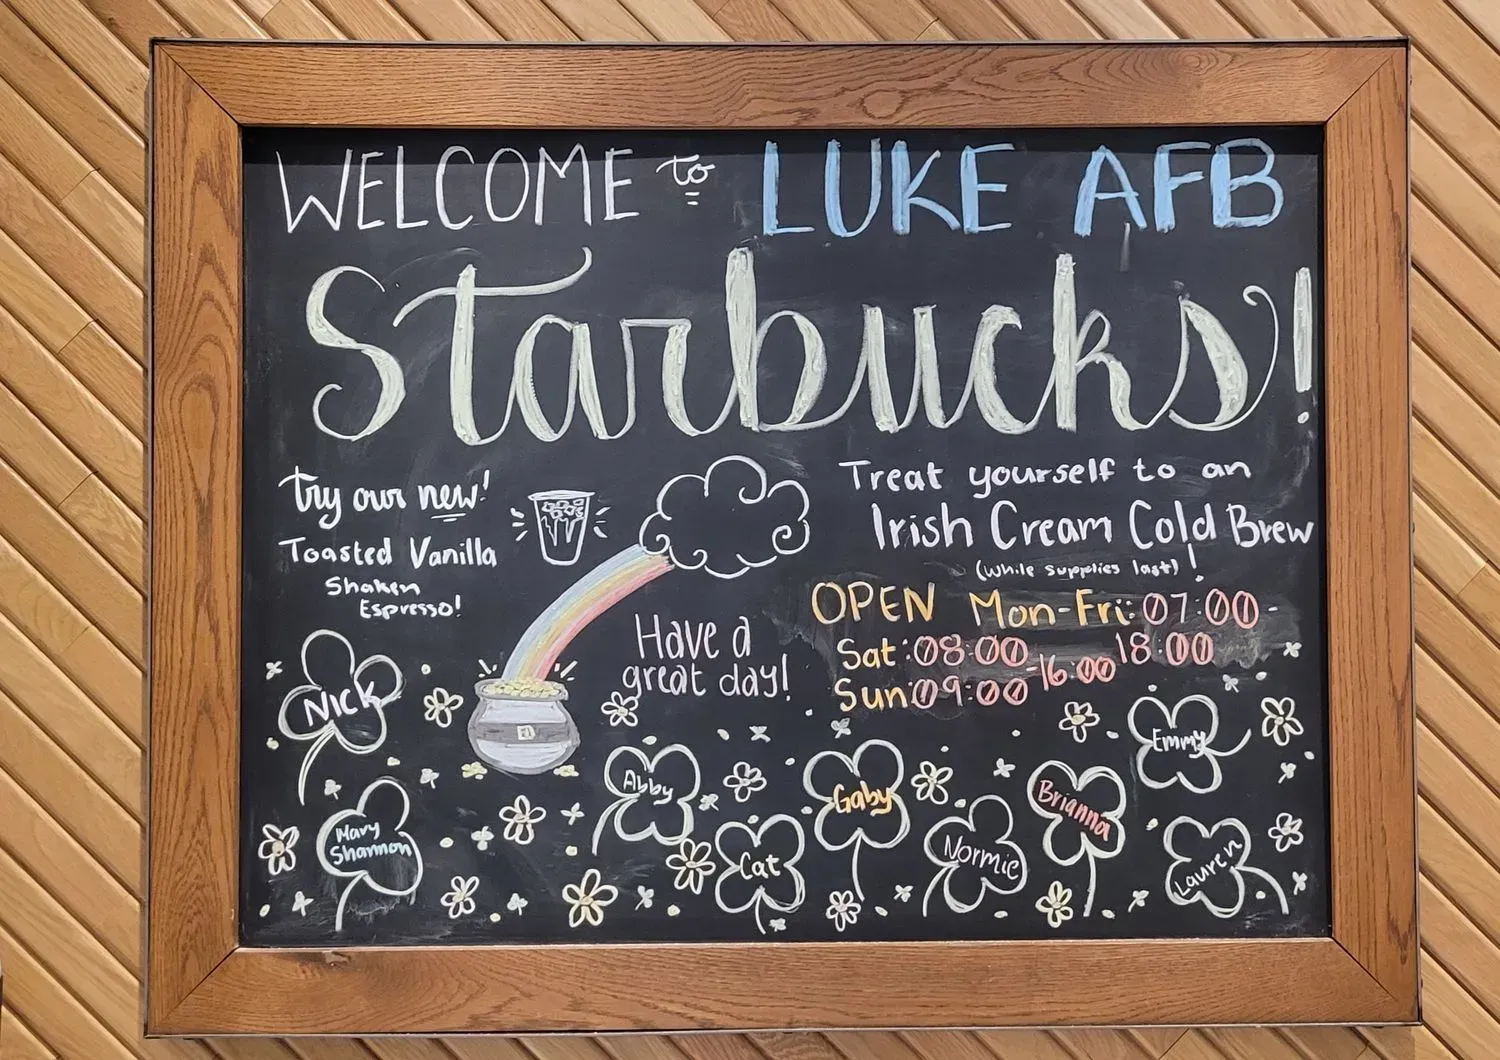 WELCOME to LUKE AFB
Starbucks!
try our new!
Toasted Vanilla
Shaken
Espresso!
Treat yourself to an
Irish Cream Cold Brew
(while supplies last)!
OPEN Mon-Fri: 07:00-
18:00
Sat: 08:00
Sun: 09:00
-16:00
Have a
great day!
Nick
Mary
Shannon
Abby
Cat
Gaby
Normie
Brianna
Emmy
Lauren